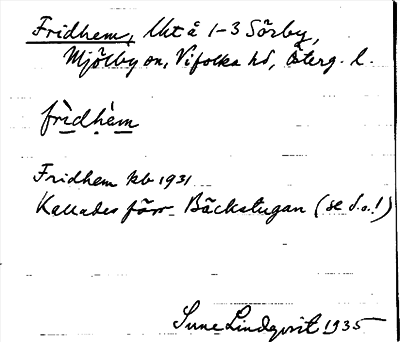 Fridhem, Ukt å 1-3 Sörby,
Mjölby sn, Vifolka hd, Österg. l.
frìdhèm
Fridhem kb 1931
Kallades förr Bäckstugan (se d.o.!)
Sune Lindqvist 1935